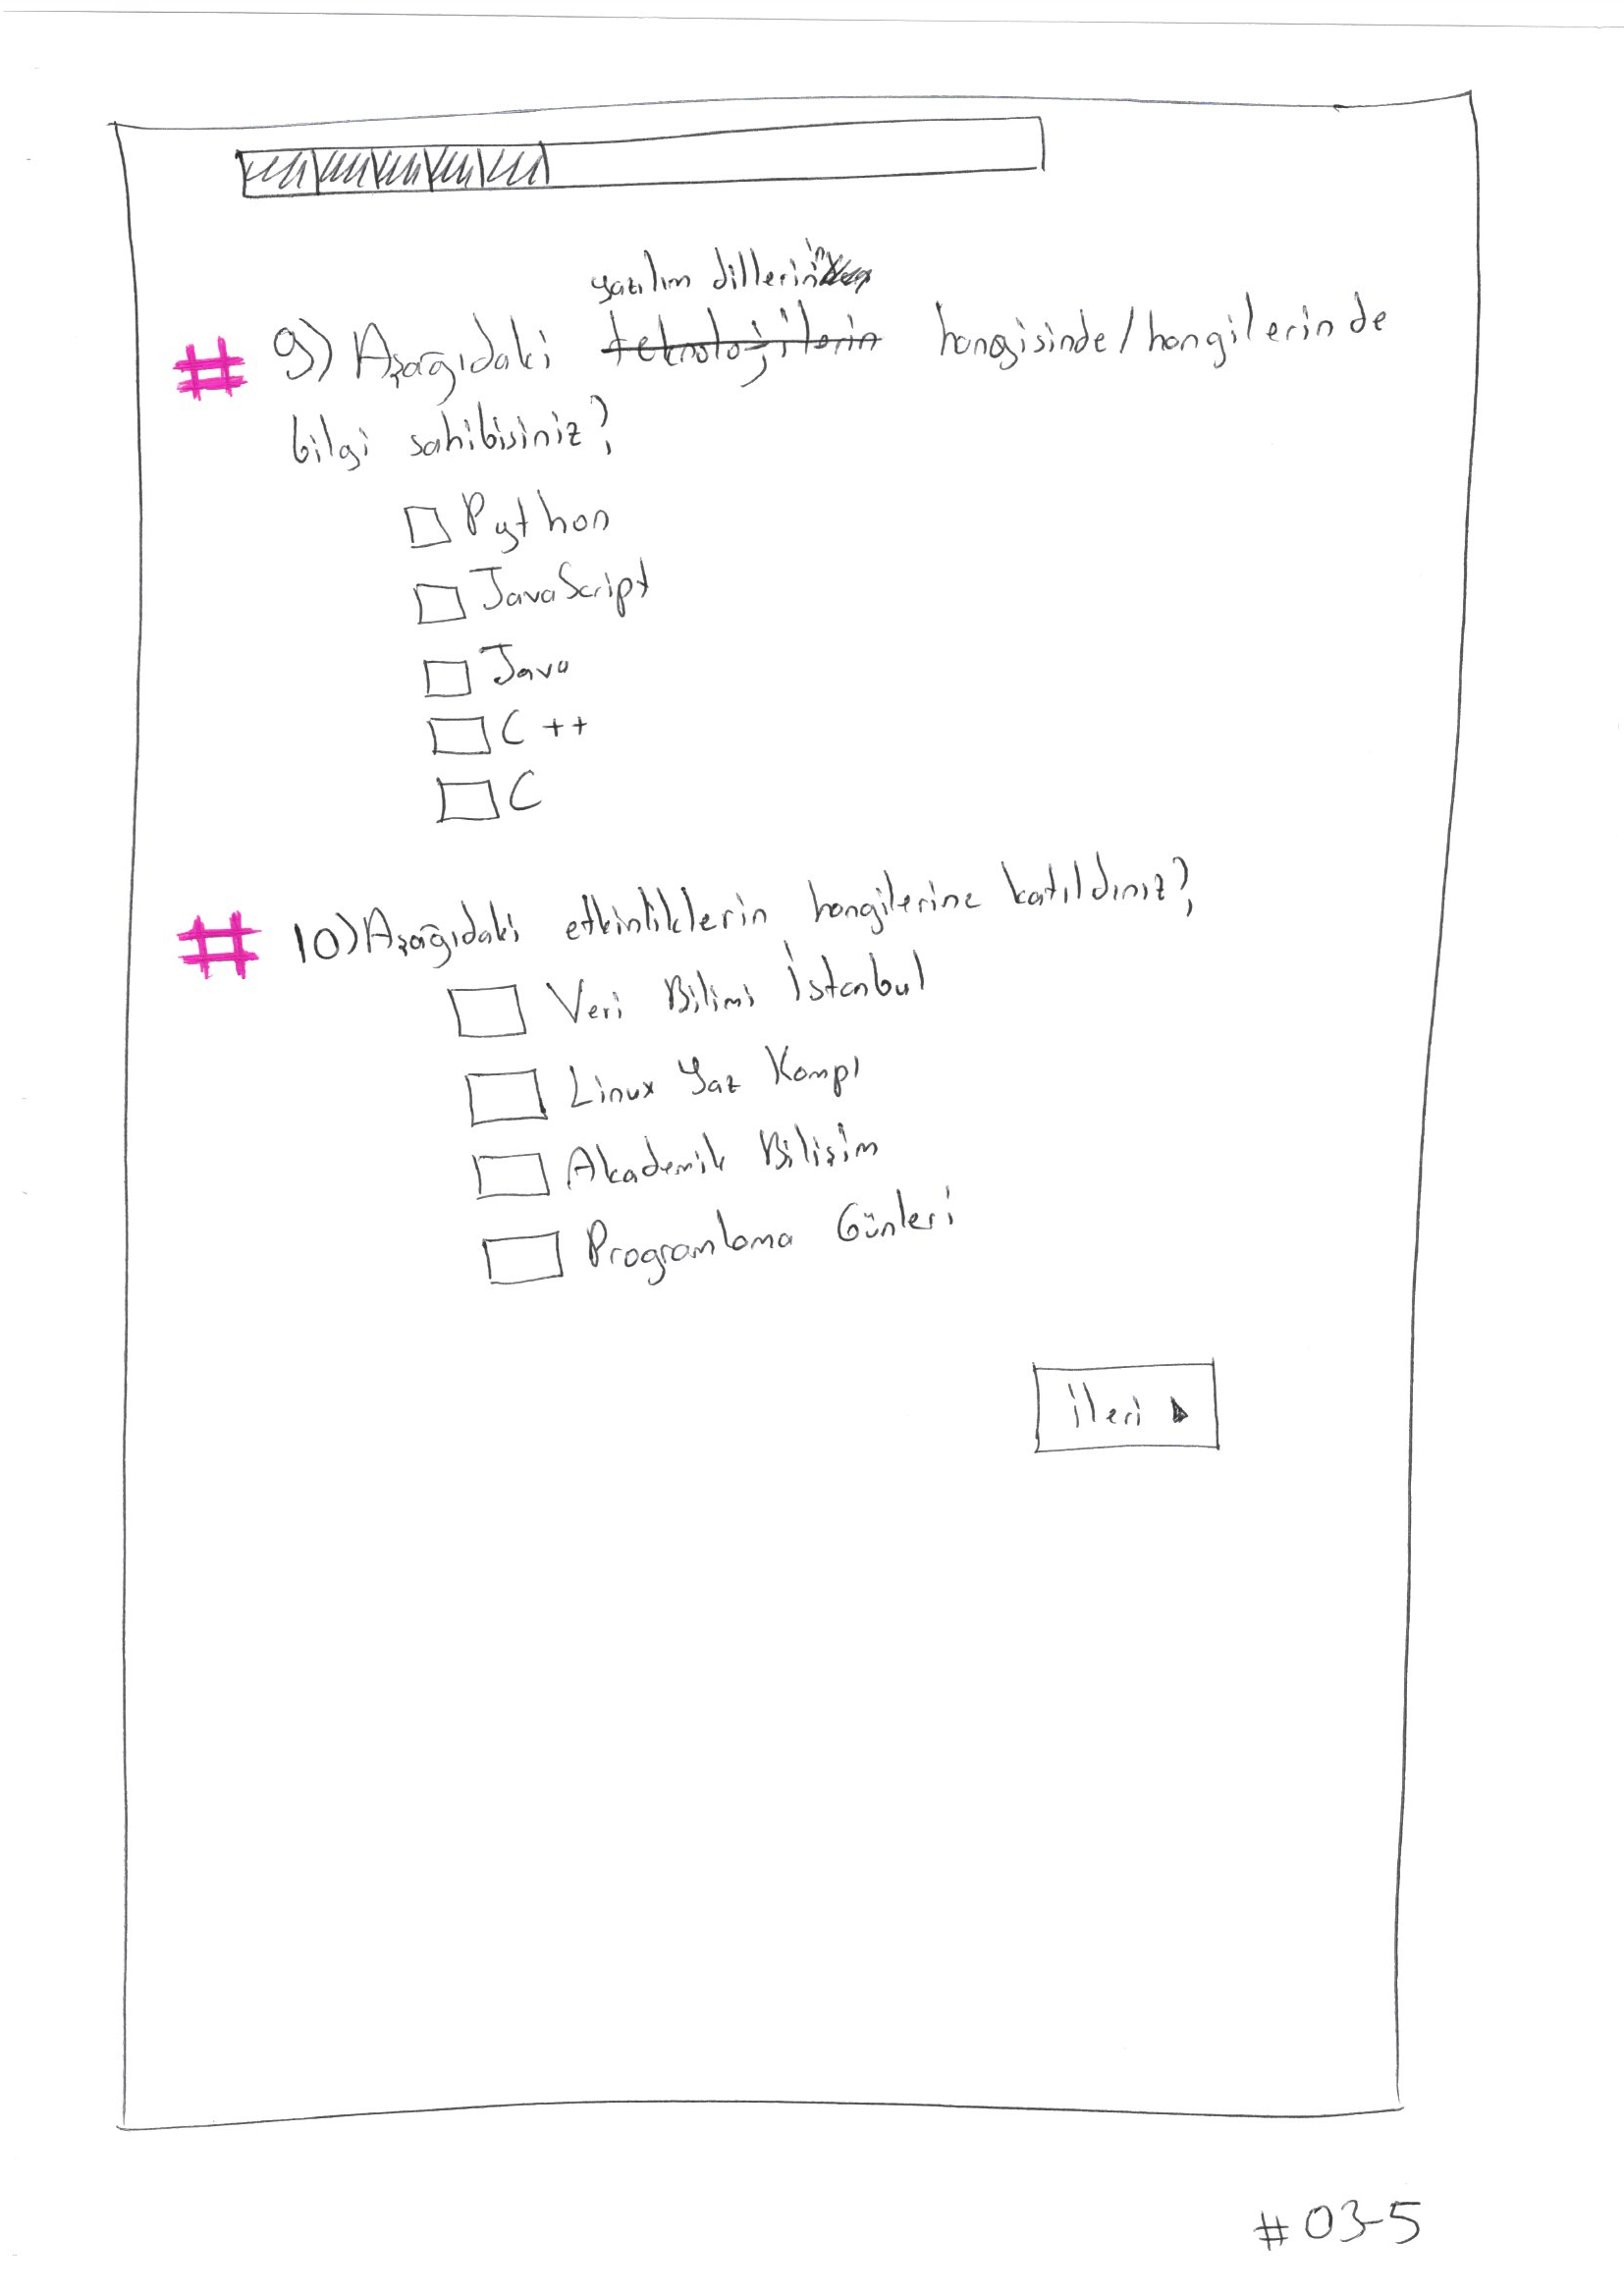 yazılım dillerin
# 9) Aşağıdaki teknolojilerin hangisinde/hangilerinde
bilgi sahibisiniz?
Python
JavaScript
Java
C ++
C
# 10) Aşağıdaki etkinliklerin hangilerine katıldınız?
Veri Bilimi İstanbul
Linux Yaz Kampı
Akademik Bilişim
Programlama Günleri
İleri
#03-5